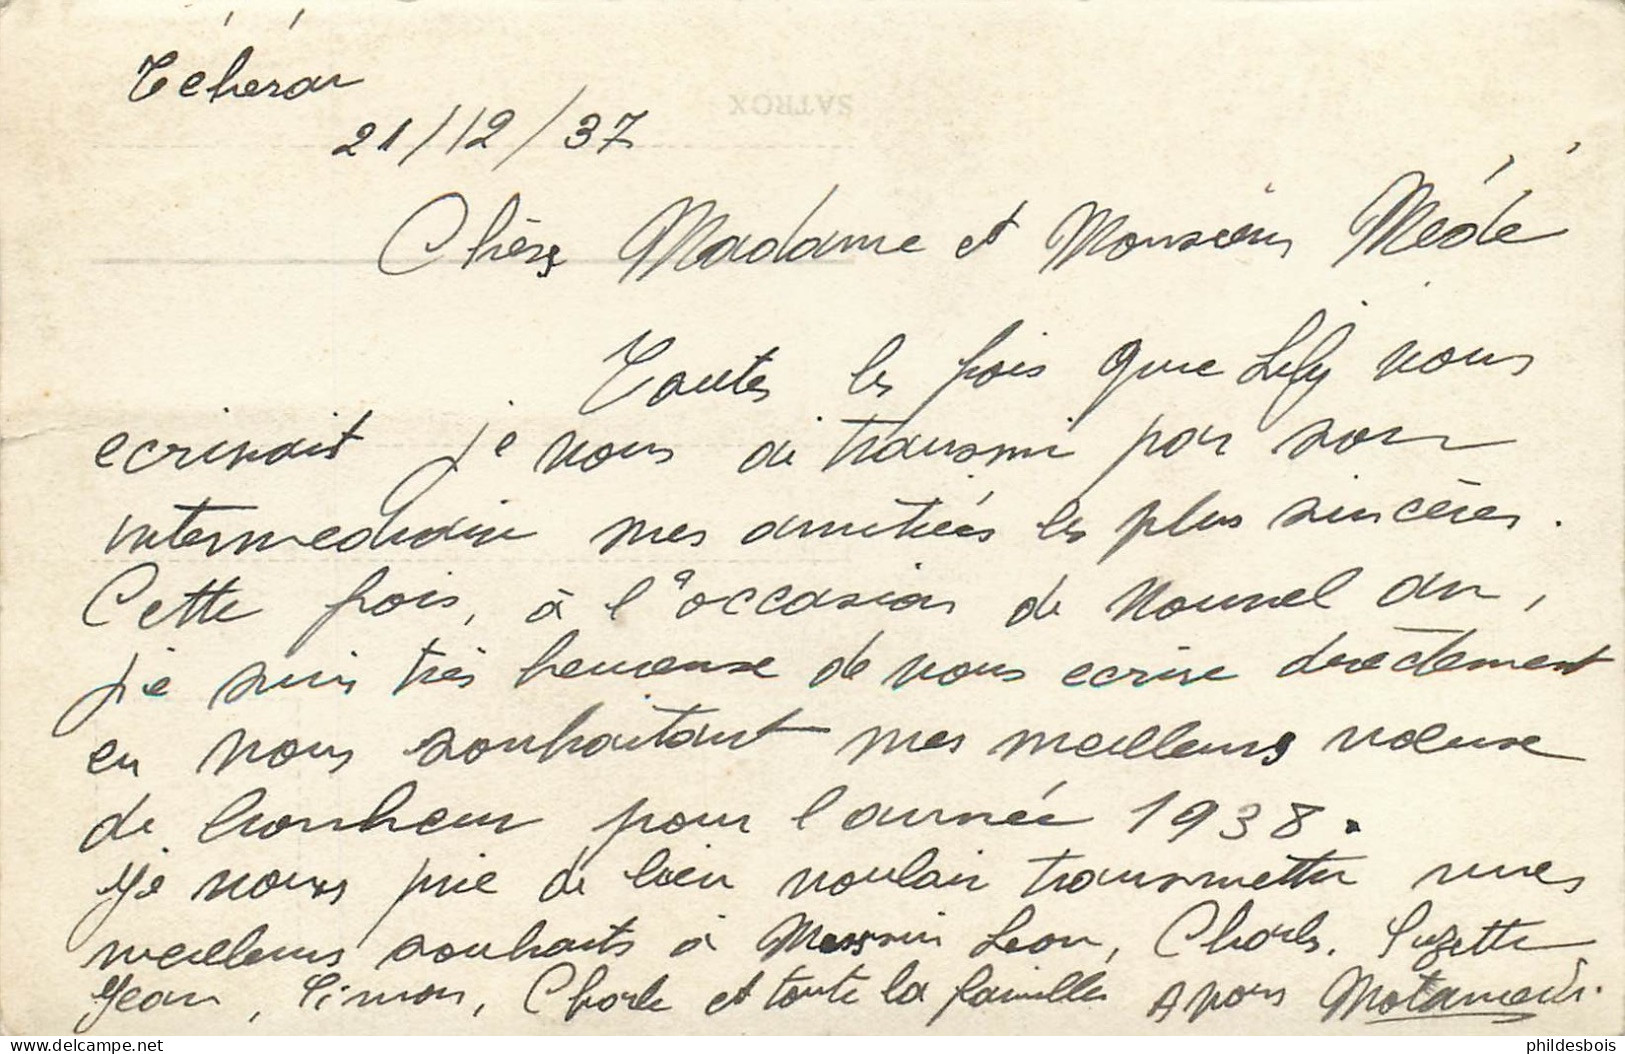 Téhéran
21/12/37
SATROX
Chère Madame et Monsieur Médé
Toutes les fois que Lily vous
ecrivait je vous ai transmi par son
intermediaire mes amitiés les plus sincères.
Cette fois, à l'occasion de Nouvel an,
je suis très heureuse de vous ecrire directement
en vous souhaitant mes meilleurs voeuxe
de bonheur pour l'année 1938.
Je vous prie de bien vouloir transmettre mes
meilleurs souhaits à Messrin Leon, Charls. Suzette
Jean, Simon, Charle et toute la famille Motamedi.
philedesbois.com
phildesbois